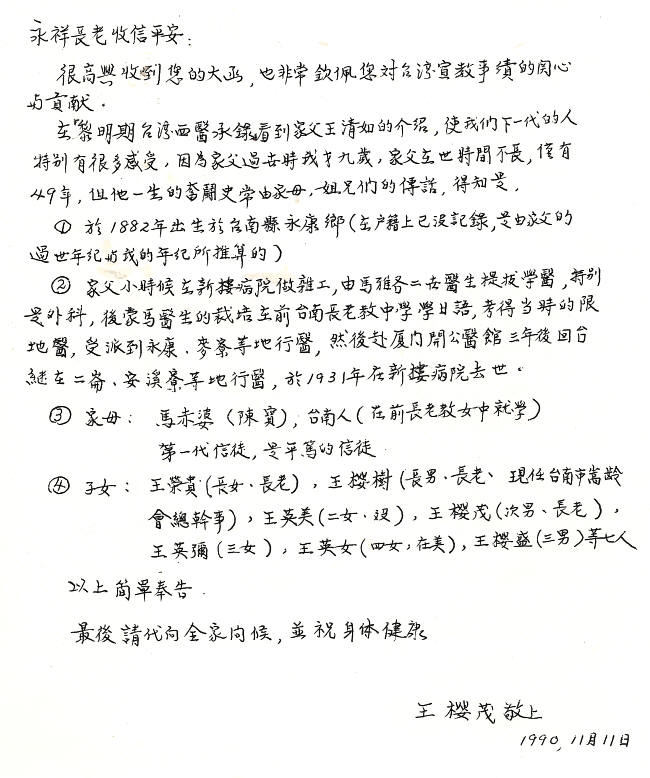 永祥長老收信平安:
很高興收到您的大函,也非常欽佩您对台湾宣教事績的関心
与貢献.
在「黎明期台湾西醫承錄」看到家父王清如的介紹,使我們下一代的人
特別有很多感受,因為家父過去時我才九歲,家父在世時間不長,僅有
49年,但他一生的奮鬪史常由家母、姐兄們的傳話,得知是.
① 於1882年出生於台南縣永康鄉(在户籍上已没記錄,是由家父的
過世年紀與我的年紀所推算的)
② 家父小時候在新樓病院做雜工,由馬雅各二世醫生提拔學醫,特別
是外科,後蒙馬醫生的栽培在前台南長老教中學學日語,考得当時的限
地醫,受派到永康、麥寮等地行醫,然後赴厦门開公醫館三年後回台
継在二崙、安溪寮等地行醫,於1931年在新樓病院去世。
③ 家母: 馬赤婆(陳寶),台南人(在前長老教女中就学)
第一代信徒,是平篤的信徒
④ 子女: 王榮貴(長女、長老),王櫻樹(長男、長老、現任台南市嵩龄
會總幹事),王英美(二女、没),王櫻茂(次男、長老),
王英彌(三女),王英女(四女,在美),王櫻盛(三男)等七人
以上簡單奉告
最後請代向全家问候,並祝身体健康
王櫻茂敬上
1990, 11月11日